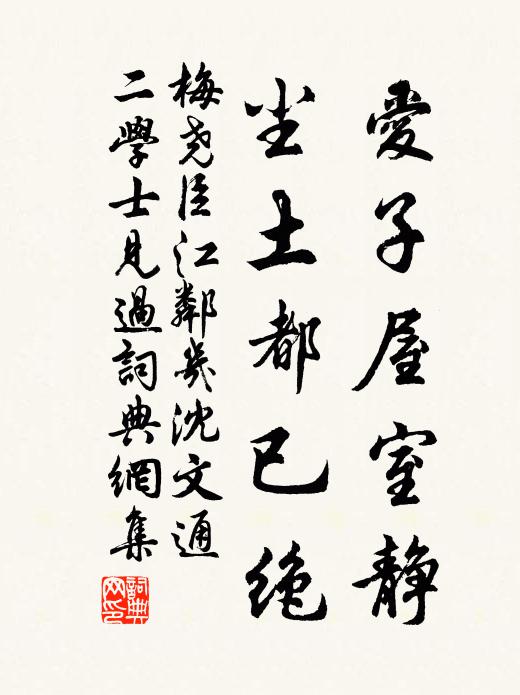 愛子屋室静
尘土都已绝
梅尧臣江鄰幾沈文通
二學士見過詞典網集
詞典网印